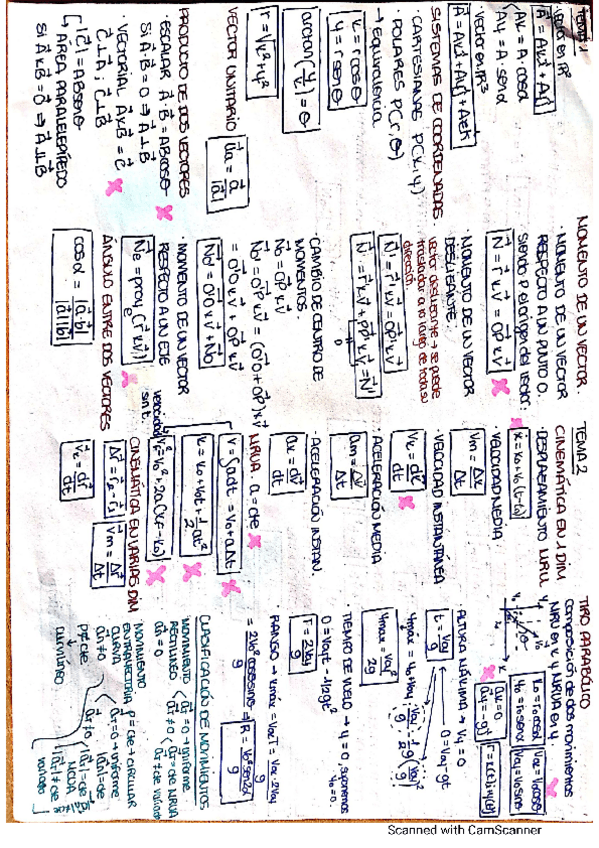 TEMA 1
· Vector en R²
A⃗ = Ax i⃗ + Ay j⃗
Ax = A·cosα
Ay = A·senα
· Vector en R³
A⃗ = Ax i⃗ + Ay j⃗ + Az k⃗
SISTEMAS DE COORDENADAS
· CARTESIANAS P(x,y)
· POLARES P(r,θ)
→ Equivalencia
x = r cosθ
y = r senθ
arctan(y/x) = θ
r = √x²+y²
VECTOR UNITARIO u⃗a = a⃗/|a⃗|
PRODUCTO DE DOS VECTORES
· ESCALAR A⃗·B⃗ = ABcosθ
Si A⃗·B⃗ = 0 ⇒ A⃗⊥B⃗
· VECTORIAL A⃗xB⃗ = C⃗
C⃗⊥A⃗ ; C⃗⊥B⃗
|C⃗| = ABsenθ
↳ ÁREA PARALELEPÍPEDO
Si A⃗xB⃗ = 0⃗ ⇒ A⃗⊥B⃗
MOMENTO DE UN VECTOR
· MOMENTO DE UN VECTOR
RESPECTO A UN PUNTO O.
siendo P el origen del vector:
N⃗ = r⃗ x v⃗ = OP⃗ x v⃗
· MOMENTO DE UN VECTOR
DESLIZANTE.
Vector deslizante → se puede
trasladar a lo largo de toda su
dirección
N⃗' = r⃗' x v⃗ = OP⃗' x v⃗
N⃗' = r⃗ x v⃗ + PP⃗' x v⃗ = N⃗
0
· CAMBIO DE CENTRO DE
MOMENTOS.
N⃗o = OP⃗ x v⃗
N⃗o' = O'P⃗ x v⃗ = (O'O⃗ + OP⃗) x v⃗
= O'O⃗ x v⃗ + OP⃗ x v⃗
N⃗o' = O'O⃗ x v⃗ + N⃗o
· MOMENTO DE UN VECTOR
RESPECTO A UN EJE
N⃗e = proy e (r⃗ x v⃗)
ÁNGULO ENTRE DOS VECTORES
cosα = a⃗·b⃗ / |a⃗||b⃗|
TEMA 2
CINEMÁTICA EN 1 DIM
· DESPLAZAMIENTO MRU
x = x₀ + v₀(t-t₀)
· VELOCIDAD MEDIA
Vm = Δx/Δt
· VELOCIDAD INSTANTÁNEA
Vx = dx/dt
· ACELERACIÓN MEDIA
am = Δv/Δt
· ACELERACIÓN INSTAN.
ax = dv/dt
MRUA · a = cte
v = ∫a dt = v₀ + aΔt
x = x₀ + v₀t + 1/2 at²
velocidad sin t
v² = v₀² + 2a(xf - x₀)
CINEMÁTICA EN VARIAS DIM
Δr⃗ = r⃗₂ - r⃗₁
v⃗m = Δr⃗/Δt
v⃗ = dr⃗/dt
TIRO PARABÓLICO
composición de dos movimientos
MRU en x y MRUA en y.
x₀ = r₀ cosα
y₀ = r₀ senα
V₀x = V₀cosθ
V₀y = V₀senθ
ax = 0
ay = -g
r⃗ = x(t)i⃗ + y(t)j⃗
ALTURA MÁXIMA → Vy = 0
0 = V₀y - gt
t = V₀y/g
ymáx = y₀ + V₀y · V₀y/g - 1/2 g (V₀y/g)²
ymáx = V₀y²/2g
· TIEMPO DE VUELO → y = 0, suponemos
y₀ = 0
0 = V₀yt - 1/2gt²
T = 2V₀y/g
RANGO → xmáx = V₀xT = V₀x · 2V₀y/g
= 2V₀²cosθsenθ/g ⇒ R = V₀²sen2θ/g
CLASIFICACIÓN DE MOVIMIENTOS
MOVIMIENTO
RECTILÍNEO
a⃗n = 0
a⃗t = 0 → uniforme
a⃗t ≠ 0
a⃗t = cte MRUA
a⃗t ≠ cte variado
MOVIMIENTO
EN TRAYECTORIA
CURVA
a⃗n ≠ 0
ρ = cte → circular
a⃗t = 0 → uniforme
|a⃗n| = cte
a⃗t ≠ 0
|a⃗t| = cte
MCUA
|a⃗t| ≠ cte
variado
ρ ≠ cte
curvilíneo
Scanned with CamScanner